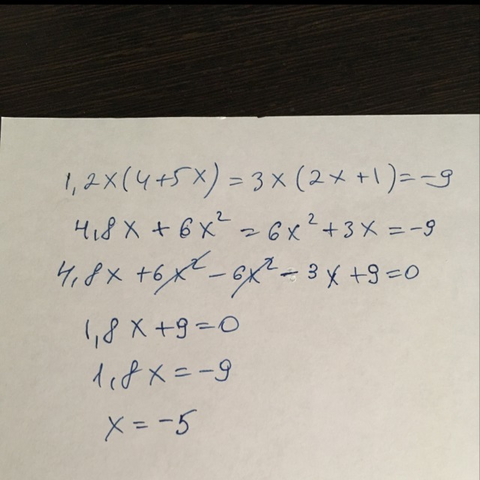 1,2x(4+5x)=3x(2x+1)=-9
4,8x+6x²=6x²+3x=-9
4,8x+6x²-6x²-3x+9=0
1,8x+9=0
1,8x=-9
x=-5